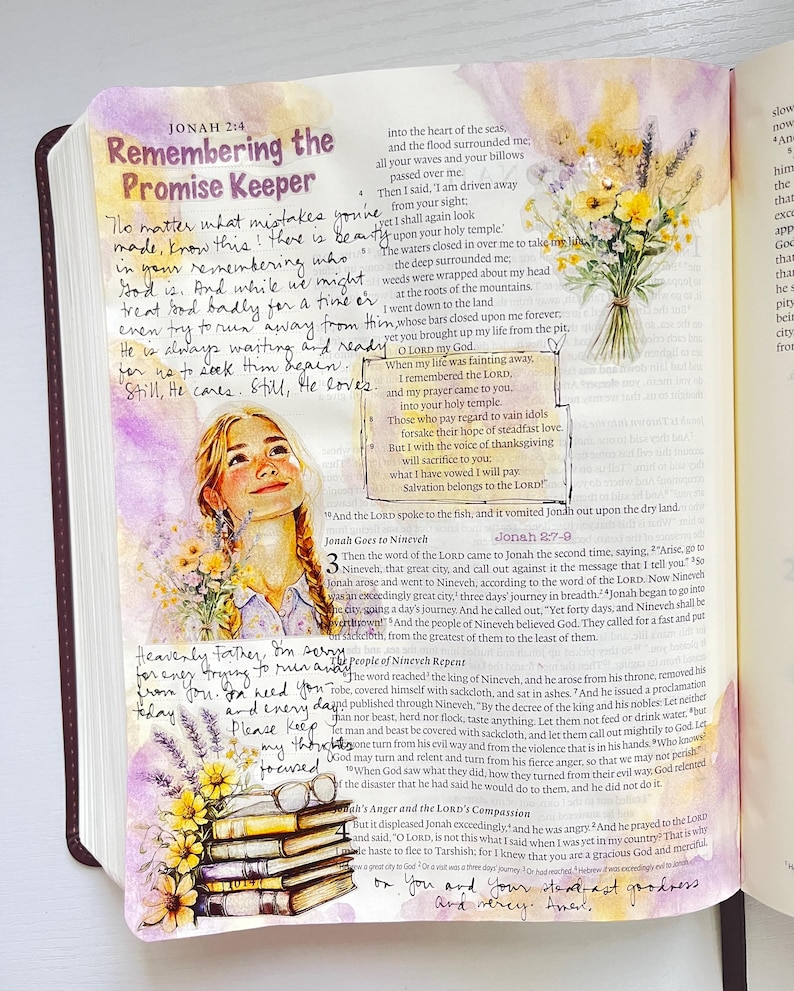 JONAH 2:4
Remembering the
Promise Keeper
No matter what mistakes you've
made, know this! There is beauty
in your remembering who
God is. And while we might
treat God badly for a time or
even try to run away from Him,
He is always waiting and ready
for us to seek Him again.
Still, He cares. Still, He loves.
into the heart of the seas,
and the flood surrounded me;
all your waves and your billows
passed over me.
4 Then I said, 'I am driven away
from your sight;
yet I shall again look
upon your holy temple.'
5 The waters closed in over me to take my life;
the deep surrounded me;
weeds were wrapped about my head
6 at the roots of the mountains.
I went down to the land
whose bars closed upon me forever;
yet you brought up my life from the pit,
O LORD my God.
When my life was fainting away,
I remembered the LORD,
and my prayer came to you,
into your holy temple.
8 Those who pay regard to vain idols
forsake their hope of steadfast love.
9 But I with the voice of thanksgiving
will sacrifice to you;
what I have vowed I will pay.
Salvation belongs to the LORD!"
10 And the LORD spoke to the fish, and it vomited Jonah out upon the dry land.
Jonah Goes to Nineveh
Jonah 2:7-9
3 Then the word of the LORD came to Jonah the second time, saying, 2 "Arise, go to
Nineveh, that great city, and call out against it the message that I tell you." 3 So
Jonah arose and went to Nineveh, according to the word of the LORD. Now Nineveh
was an exceedingly great city,1 three days' journey in breadth.2 4 Jonah began to go into
the city, going a day's journey. And he called out, "Yet forty days, and Nineveh shall be
overthrown!" 5 And the people of Nineveh believed God. They called for a fast and put
on sackcloth, from the greatest of them to the least of them.
The People of Nineveh Repent
6 The word reached3 the king of Nineveh, and he arose from his throne, removed his
robe, covered himself with sackcloth, and sat in ashes. 7 And he issued a proclamation
and published through Nineveh, "By the decree of the king and his nobles: Let neither
man nor beast, herd nor flock, taste anything. Let them not feed or drink water, 8 but
let man and beast be covered with sackcloth, and let them call out mightily to God. Let
everyone turn from his evil way and from the violence that is in his hands. 9 Who knows?
God may turn and relent and turn from his fierce anger, so that we may not perish."
10 When God saw what they did, how they turned from their evil way, God relented
of the disaster that he had said he would do to them, and he did not do it.
Jonah's Anger and the LORD's Compassion
4 But it displeased Jonah exceedingly,4 and he was angry. 2 And he prayed to the LORD
and said, "O LORD, is not this what I said when I was yet in my country? That is why
I made haste to flee to Tarshish; for I knew that you are a gracious God and merciful,
Hebrew a great city to God 2 Or a visit was a three days' journey 3 Or had reached 4 Hebrew it was exceedingly evil to Jonah
Heavenly Father, I'm sorry
for ever trying to run away
from You. I need You
today and every day.
Please keep
my thoughts
focused
on You and Your steadfast goodness
and mercy. Amen.
slow
now
4 And
5
him
that
exce
app
God
that
that
he s
pity
bei
city